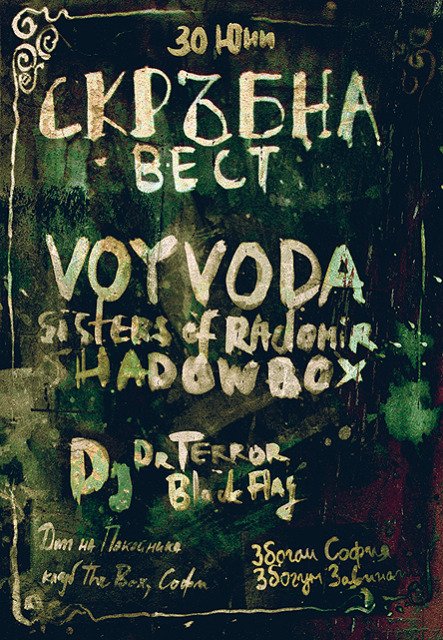 30 Юни
СКРЪБНА
ВЕСТ
VOYVODA
SISTERS of RADOMIR
SHADOWBOX
DJ DR TERROR
Black Flag
Дом на Покойника
клуб The Box, София
Збогом София
Збогум Завинаги